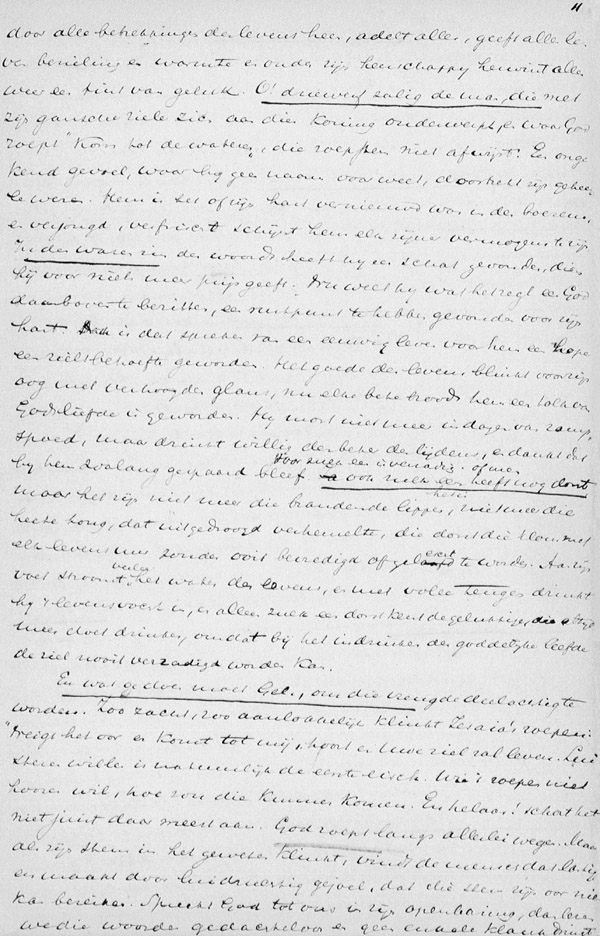 11
door alle betrekkingen des levens heen, adelt alles, geeft alle le-
ven bezieling en warmte en onder zijn heerschappij herwint alles
weer een tint van geluk. O! driewerf zalig de man, die met
zijn gansche ziele zich aan dien Koning onderwerpt, en waar God
roept "Kom tot de wateren", die roepstem niet afwijst! Een onge-
kend gevoel, waar hij geen naam voor weet, doortrilt zijn geheele
wezen. Hem is het of zijn hart vernieuwd was in den boezem,
en verjongd, verfrischt schijnt hem elk zijner vermogens te zijn
In den waren zin des woords heeft hij een schat gevonden, dien
hij voor niets meer prijs geeft. Nu weet hij wat het zegt een God
daarboven te bezitten, een rustpunt te hebben gevonden voor zijn
hart. is dat spreken van een eeuwig leven voor hem een
een zielsbehoefte geworden. Het goede des levens blinkt voor zijn
oog met verhoogden glans, nu elke hem een tolk van
Gods liefde is geworden. Hij mort niet meer in dagen van ramp-
spoed, maar drinkt willig den beker des lijdens, en dankt dat
hij hem zoolang gespaard bleef. Voor zulk een is ook
heeft nog dorst
maar het zijn niet meer die brandende lippen, niet meer die
heete tong, dat uitgedroogd verhemelte, die dorst die klom met
elk levensuur zonder ooit bevredigd of gelescht te worden. Aan zijn
voet stroomt het water des levens, en met volle teugen drinkt
hij 't levensvocht in, en alleen zulk een dorst kent de gelukkige, die altijd
meer doet drinken, omdat bij het indrinken der goddelijke liefde
de ziel nooit verzadigd worden kan.
En wat gedaan moet Gel., om die vreugde deelachtig te
worden. Zoo zacht, zoo aanlokkelijk klinkt Jesaia's roepen:
"Neigt het oor en komt tot mij, hoort en uwe ziel zal leven. Lui-
steren willen is natuurlijk de eerste eisch. Wie 't roepen niet
hooren wil, hoe zou die kunnen komen. En helaas! schort het
niet juist daar meest aan. God roept langs allerlei wegen. Maar
als zijn stem in het geweten klinkt, vindt de mensch dat lastig
en maakt door luidruchtig gejoel, dat die stem zijn oor niet
kan bereiken. Spreekt God tot ons in zijn openbaring, dan lezen
we die woorden gedachteloos en geen enkele klank dringt